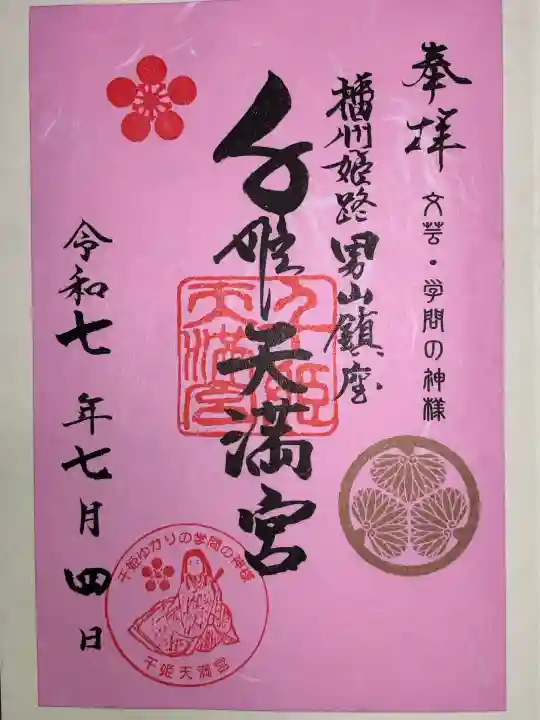 奉拝
文芸・学問の神様
播州姫路 男山鎮座
千姫天満宮
千姫天満宮
令和七年七月四日
千姫ゆかりの学問の神様
千姫天満宮